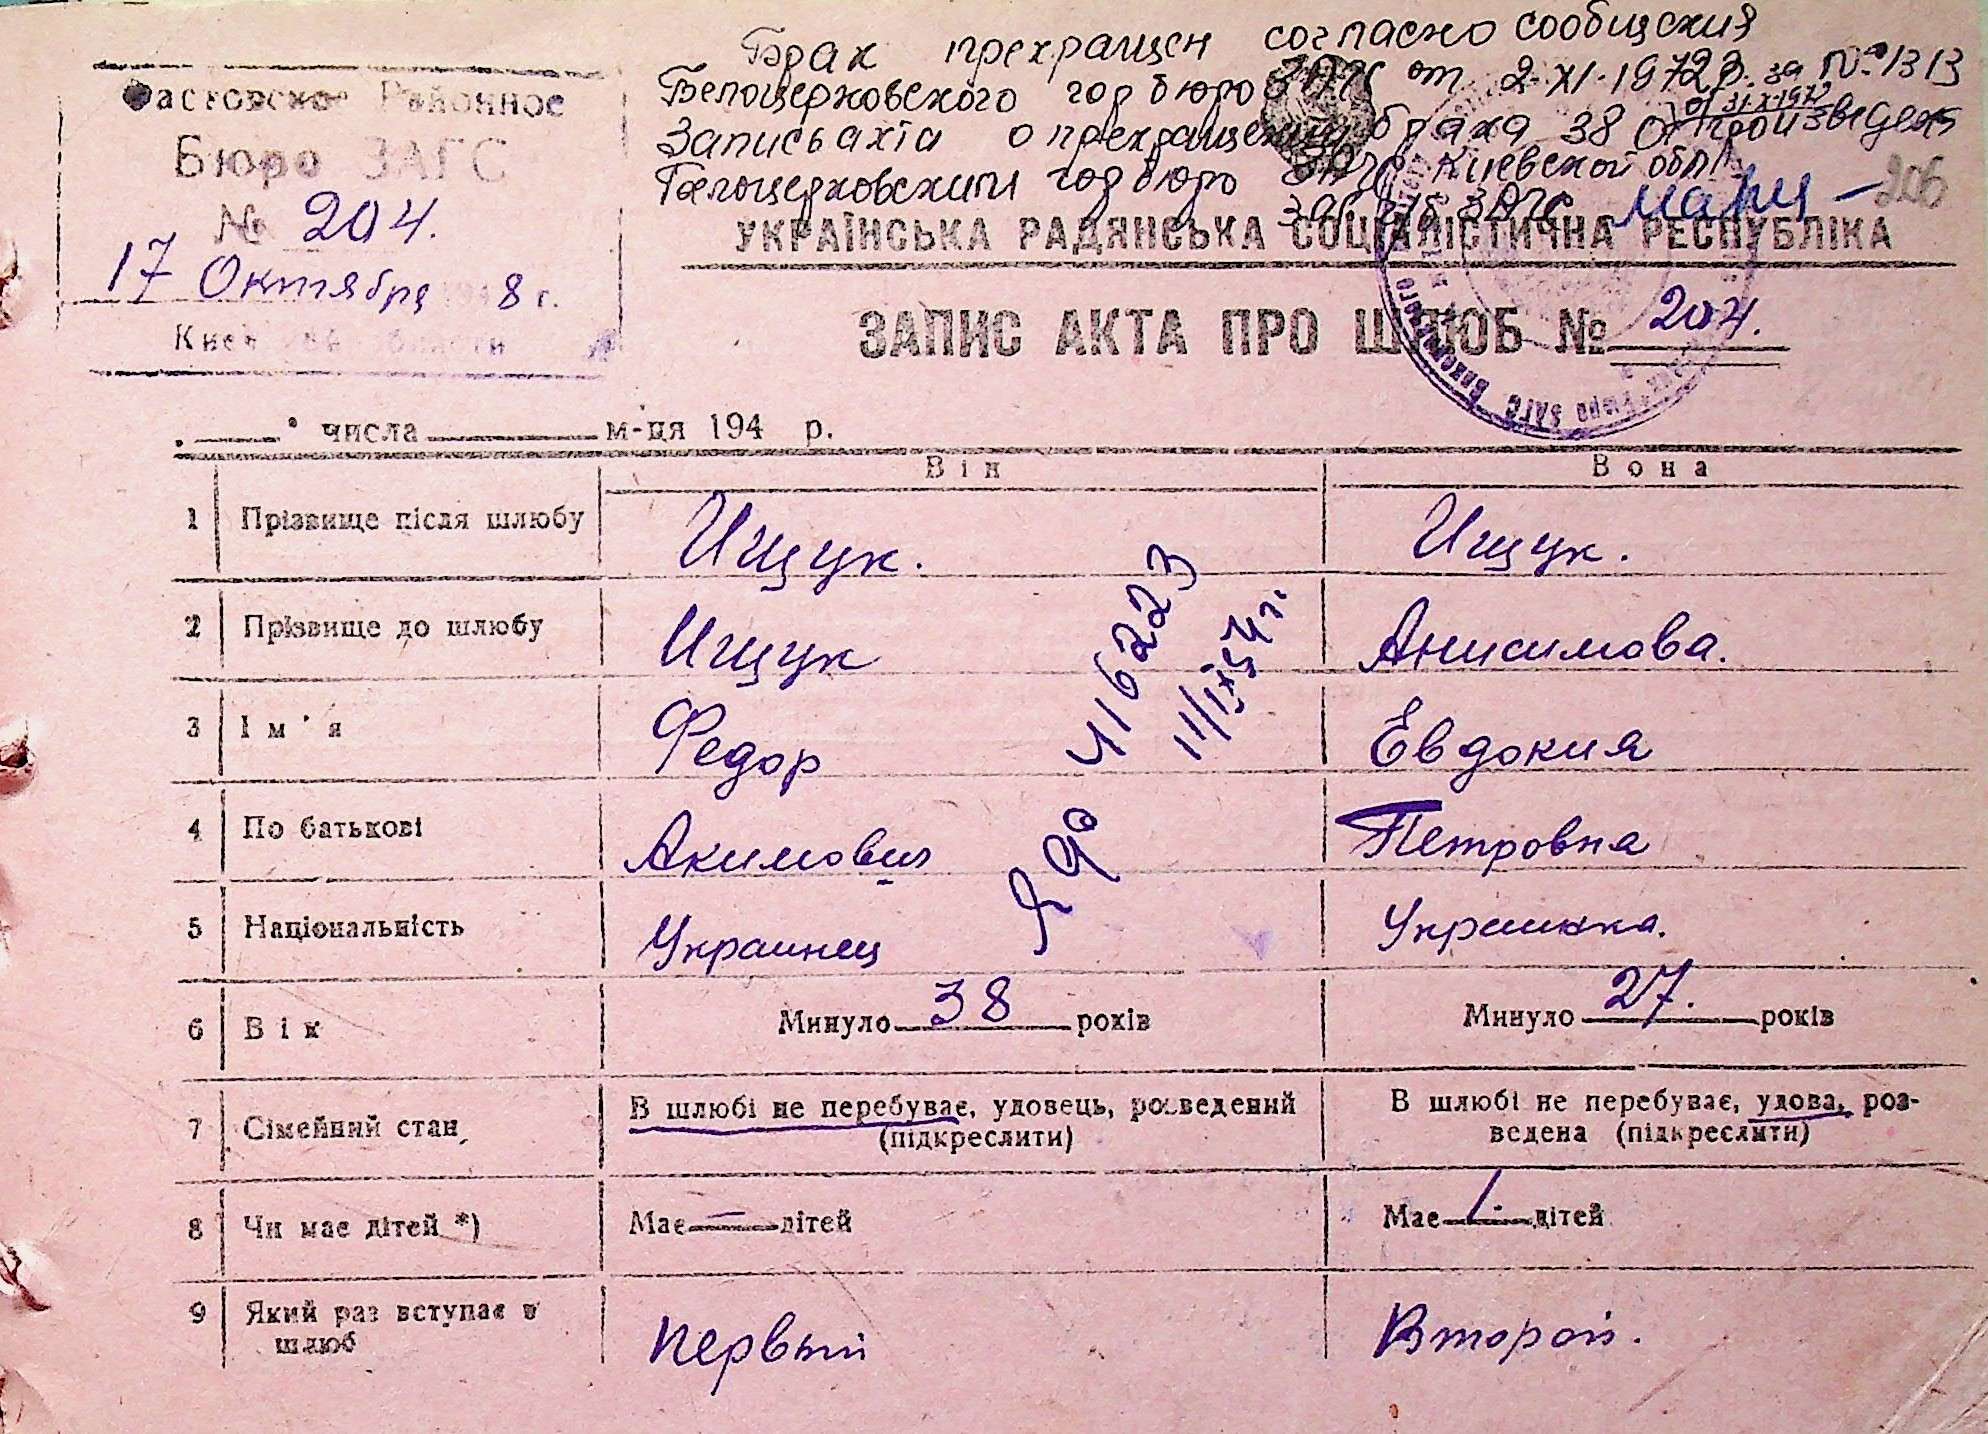 Брак прекращен согласно сообщения
Белоцерковского гор бюро ЗАГС от 2-XI-1972г. за № 1313
от 31-X-1972
Запись акта о прекращении брака 38 произведен
Белоцерковским гор бюро ЗАГС Киевской обл
Зав г/б ЗАГС
206
Фастовское Районное
Бюро ЗАГС
№ 204.
17 Октября 194 8 г.
УКРАЇНСЬКА РАДЯНСЬКА СОЦІАЛІСТИЧНА РЕСПУБЛІКА
ЗАПИС АКТА ПРО ШЛЮБ № 204.
„ “ числа м-ця 194 р.
Він Вона
1 Прізвище після шлюбу Ищук. Ищук.
2 Прізвище до шлюбу Ищук Анисимова.
3 Ім'я Федор Евдокия
4 По батькові Акимович Петровна
5 Національність Украинец Украинка.
6 Вік Минуло 38 років Минуло 27. років
7 Сімейний стан В шлюбі не перебуває, удовець, розведений (підкреслити) В шлюбі не перебуває, удова, роз-
ведена (підкреслити)
8 Чи має дітей *) Має — дітей Має 1. дітей
9 Який раз вступає в
шлюб Первый Второй.
416223
11/IX 54 г.